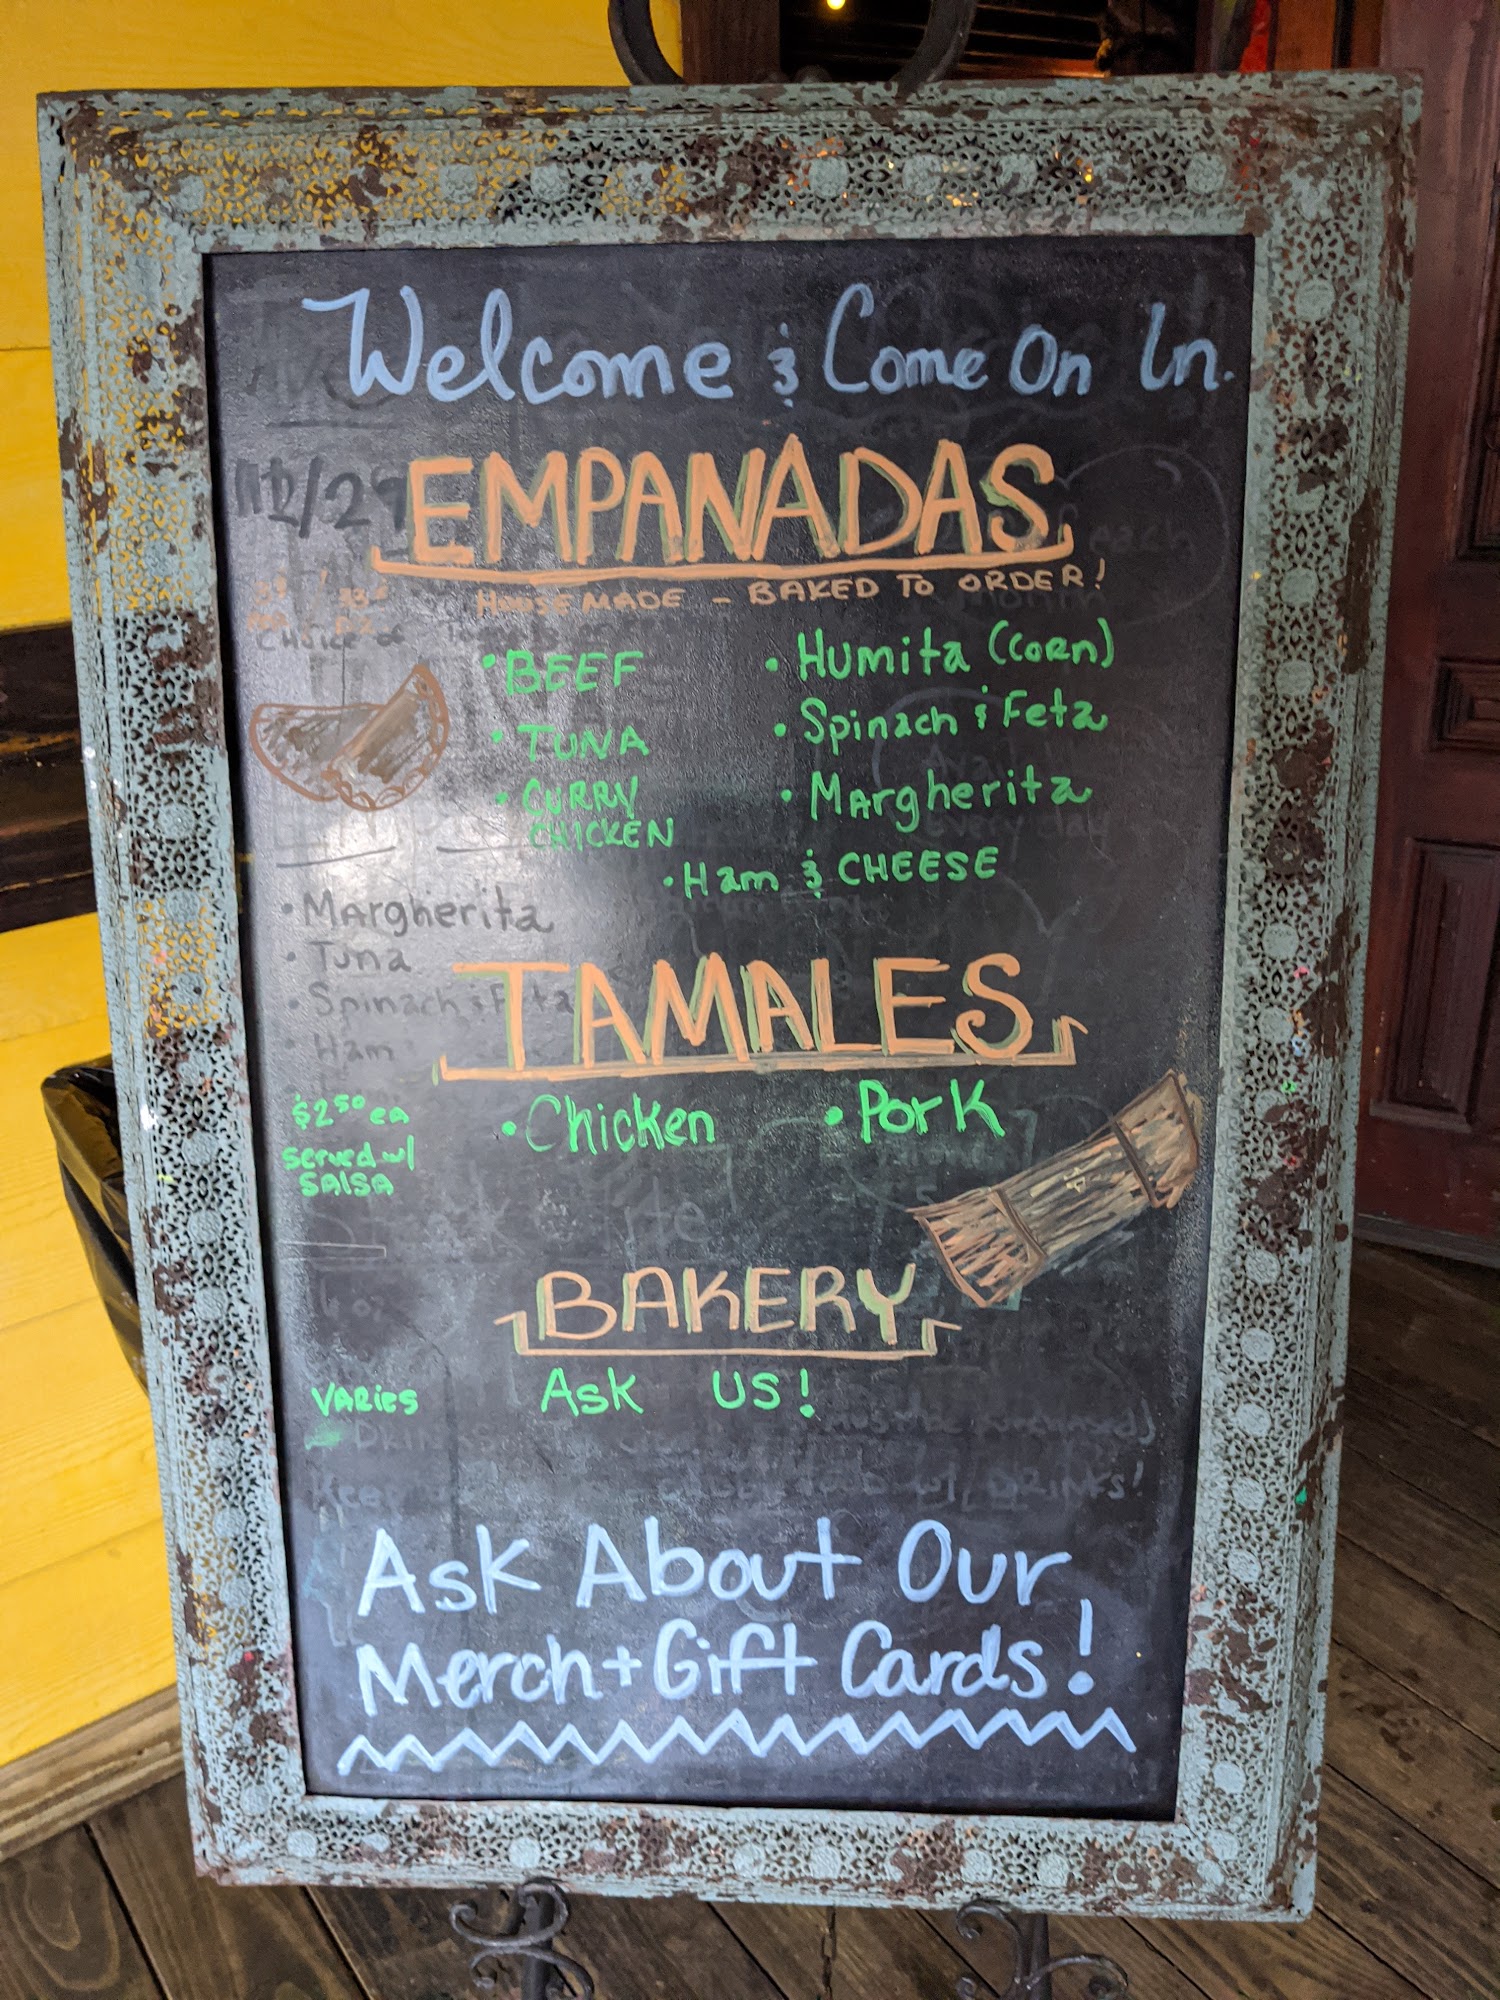 Welcome & Come On In.
EMPANADAS
HOUSEMADE - BAKED TO ORDER!
• BEEF
• Humita (Corn)
• TUNA
• Spinach & Feta
• CURRY CHICKEN
• Margherita
• Ham & CHEESE
• Margherita
• Tuna
• Spinach & Feta
• Ham
TAMALES
$2.50 ea
served w/
SALSA
• Chicken
• Pork
BAKERY
VARIES
Ask US!
Ask About Our
Merch + Gift Cards!